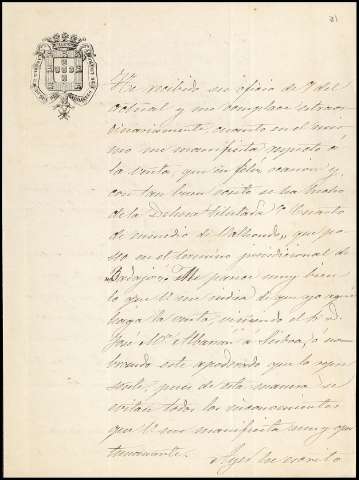 He recibido su oficio de 9 del
actual y me complace extraor
dinariamente, cuanto en el mis
mo me manifiesta respecto a
la venta, que en feliz ocasión y
con tan buen éxito se ha hecho
de la Dehesa titulada "Cuarto
de enmedio de Valhondo", que po
seo en el término jurisdiccional de
Badajoz. Me parece muy bien
lo que V. me indica de que yo aquí
haga la venta, viniendo el S. D.
José Mª Albarrán á Lisboa, ó nom
brando este apoderado que lo repre
sente, pues de esta manera se
evitan todos los inconvenientes
que V. me manifiesta muy opor
tunamente.
Ayer he escrito